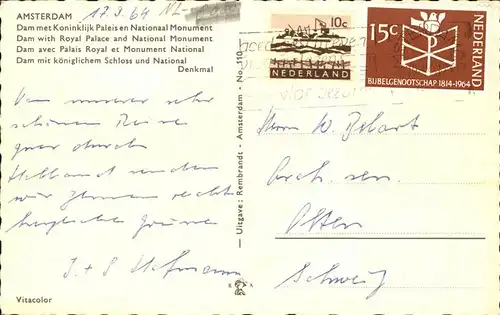 AMSTERDAM 17.9.64 NL-
Dam met Koninklijk Paleis en National Monument
Dam with Royal Palace and National Monument
Dam avec Palais Royal et Monument National
Dam mit königlichem Schloss und National
Denkmal
Von unserer sehr
schönen Reise
quer durch
Holland senden
wir Ihnen recht
herzliche Grüsse
J. + S Hofmann
Vitacolor
Uitgave: Rembrandt - Amsterdam - No. 150
10c
NEDERLAND
15c
NEDERLAND
BIJBELGENOOTSCHAP 1814-1964
Herrn W.
Arch. sen.
Olten
Schweiz